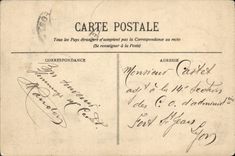 CARTE POSTALE
Tous les Pays étrangers n'acceptent pas la Correspondance au recto
(Se renseigner à la Poste)
CORRESPONDANCE
ADRESSE
Monsieur Castet
adjt à la 14e Section
des C. O. d'administon
Fort St Jean
Lyon
Bon souvenir